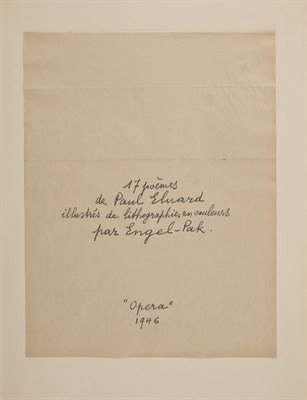 17 poèmes
de Paul Eluard
illustrés de lithographies en couleurs
par Engel-Pak.
"Opera"
1946